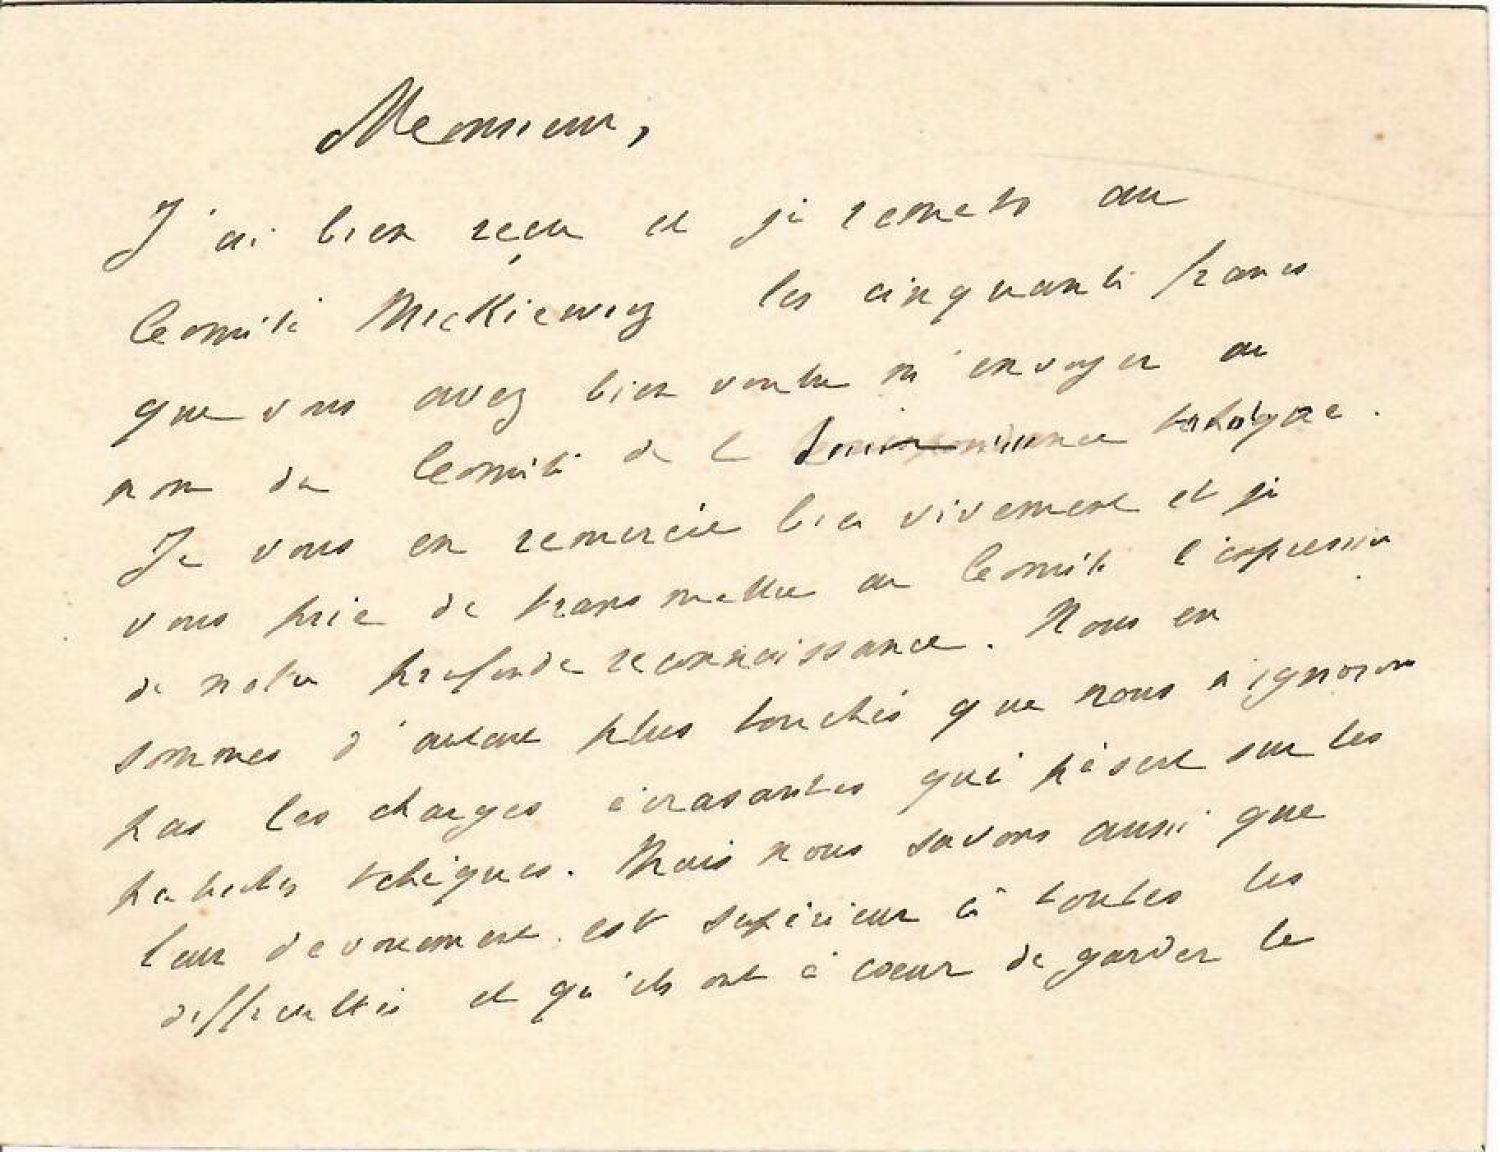 Monsieur,
J'ai bien reçu et je remets au
Comité Mickiewicz les cinquante francs
que vous avez bien voulu m'envoyer au
nom du Comité de la tchèque.
Je vous en remercie bien vivement et je
vous prie de transmettre au Comité l'expression
de notre profonde reconnaissance. Nous en
sommes d'autant plus touchés que nous n'ignorons
pas les charges écrasantes qui pèsent sur les
patriotes tchèques. Mais nous savons aussi que
leur dévouement est supérieur à toutes les
difficultés et qu'ils ont à coeur de garder le